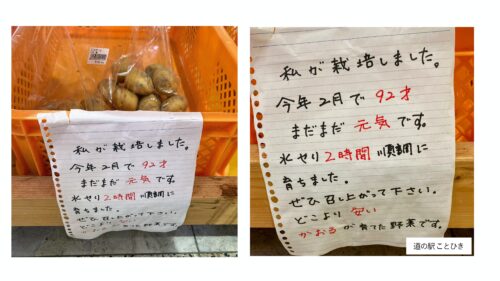 私が栽培しました。
今年2月で92才
まだまだ元気です。
水やり2時間 順調に
育ちました。
ぜひ召し上がって下さい。
どこより安い
が育てた野菜です。
私が栽培しました。
今年2月で92才
まだまだ元気です。
水やり2時間 順調に
育ちました。
ぜひ召し上がって下さい。
どこより安い
かおるが育てた野菜です。
道の駅 ことひき